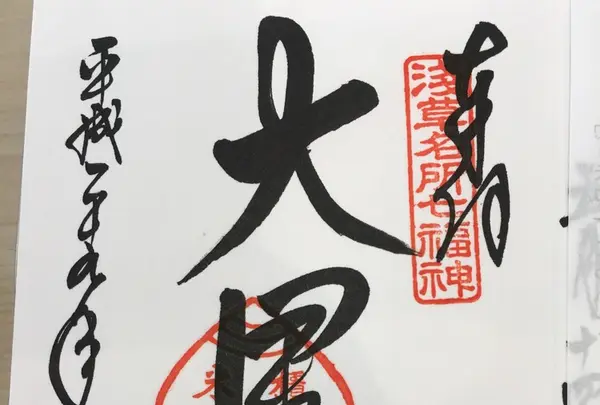 奉拝
浅草名所七福神
大黒
平成二十九年